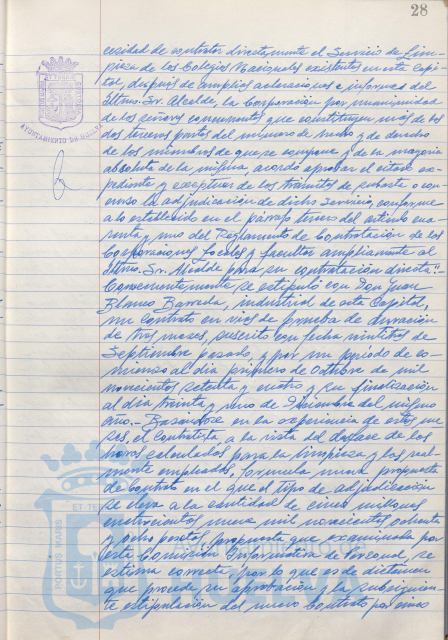 28
cesidad de contratar directamente el Servicio de Lim-
pieza de los Colegios Nacionales existentes en esta Capi-
tal, después de amplias aclaraciones e informes del
Iltmo. Sr. Alcalde, la Corporación por unanimidad
de los señores concurrentes que constituyen más de los
dos terceras partes del número de hecho y de derecho
de los miembros de que se compone y de la mayoría
absoluta de la misma, acordó aprobar el citado ex-
pediente y exceptuar de los trámites de subasta o con-
curso la adjudicación de dicho Servicio, conforme
a lo establecido en el párrafo tercero del artículo cua-
renta y uno del Reglamento de Contratación de las
Corporaciones Locales y facultar ampliamente al
Iltmo. Sr. Alcalde para su contratación directa".-
Consecuentemente se estipuló con Don Juan
Blanco Barreda, industrial de esta Capital,
un contrato en vías de prueba de duración
de tres meses, suscrito con fecha veintitrés de
Septiembre pasado, y por un período de co-
mienzo al día primero de Octubre de mil
novecientos setenta y cuatro y su finalización
al día treinta y uno de Diciembre del mismo
año.- Basándose en la experiencia de estos me-
ses, el contratista, a la vista del desfase de las
horas calculadas para la limpieza y las real-
mente empleadas, formula nueva propuesta
de contrato en el que el tipo de adjudicación
se eleva a la cantidad de cinco millones
cuatrocientas nueve mil novecientas ochenta
y ocho pesetas, propuesta que examinada por
esta Comisión Informativa de Personal, se
estima correcta por lo que es de dictamen
que procede su aprobación y la subsiguien-
te estipulación del nuevo Contrato por cinco